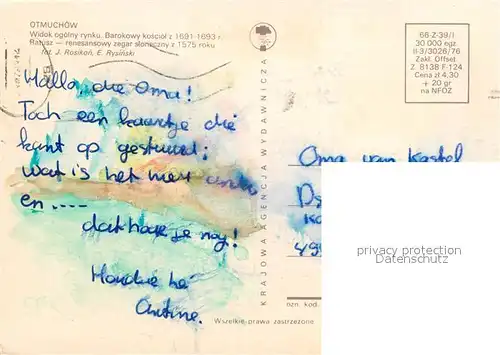 OTMUCHÓW
Widok ogólny rynku. Barokowy kościół z 1691-1693 r.
Ratusz — renesansowy zegar słoneczny z 1575 roku
fot. J. Rosikoń, E. Rysiński
66-Z-39/I
30 000 egz.
II-3/3026/76
Zakł. Offset.
Z. 8138 F-124
Cena zł 4.30
+ 20 gr
na NFOZ
Hallo, die Oma!
Toch een kaartje die
kant op gestuurd;
wat is het weer
en ....
dat hoor je nog!
KRAJOWA AGENCJA WYDAWNICZA
Oma van Kastel
privacy protection
Datenschutz
ozn. kod.
Wszelkie prawa zastrzeżone